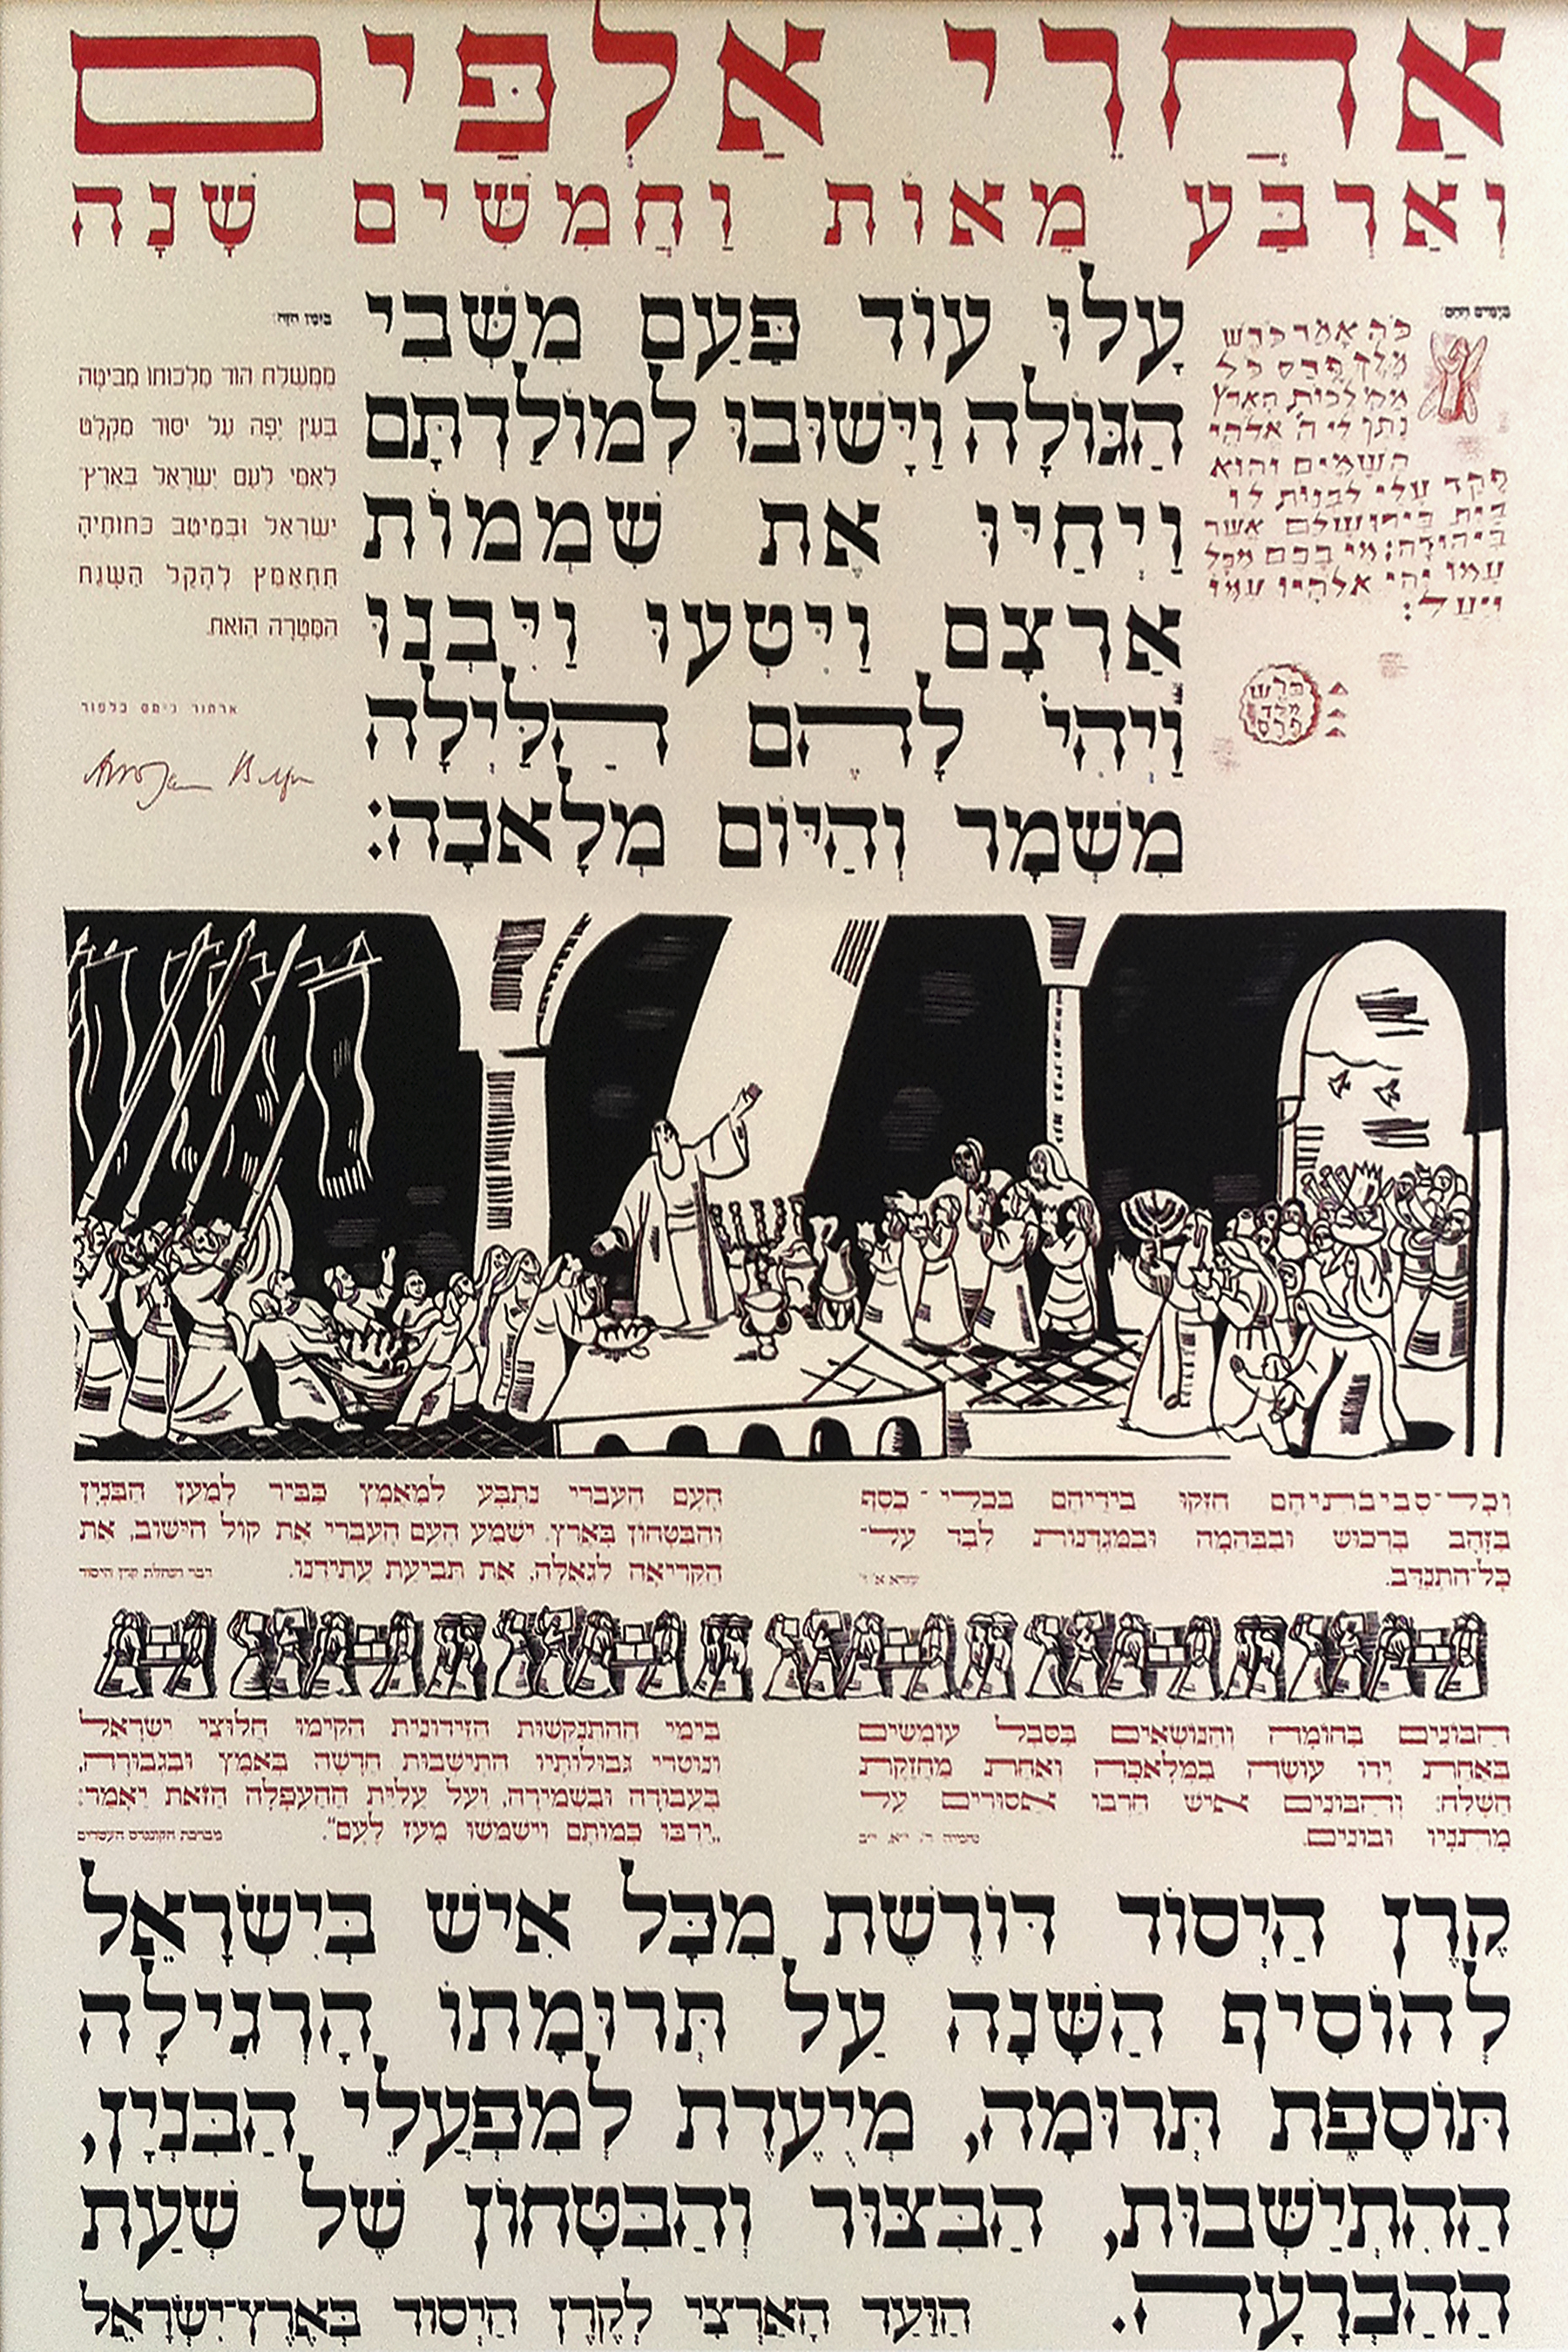 אַחֲרֵי אַלְפַּיִם
וְאַרְבַּע מֵאוֹת וַחֲמִשִּׁים שָׁנָה
בימים ההם:
כֹּה אָמַר כֹּרֶשׁ
מֶלֶךְ פָּרַס כֹּל
מַמְלְכוֹת הָאָרֶץ
נָתַן לִי ה' אֱלֹהֵי
הַשָּׁמַיִם וְהוּא
פָקַד עָלַי לִבְנוֹת לוֹ
בַיִת בִּירוּשָׁלַםִ אֲשֶׁר
בִּיהוּדָה: מִי בָכֶם מִכָּל
עַמּוֹ יְהִי אֱלֹהָיו עִמּוֹ
וְיַעַל:
כֹּרֶשׁ
מֶלֶךְ
פָּרַס
עָלוּ עוֹד פַּעַם מִשְּׁבִי
הַגּוֹלָה וַיָּשׁוּבוּ לְמוֹלַדְתָּם
וַיְחַיּוּ אֶת שִׁמְמוֹת
אַרְצָם וַיִּטְּעוּ וַיִּבְנוּ
וַיְהִי לָהֶם הַלַּיְלָה
מִשְׁמָר וְהַיּוֹם מְלָאכָה:
בזמן הזה:
מֶמְשֶׁלֶת הוד מַלְכוּתוֹ מַבִּיטָה
בְּעַיִן יָפָה עַל יִסּוּד מִקְלָט
לְאֻמִּי לְעַם יִשְׂרָאֵל בְּאֶרֶץ־
יִשְׂרָאֵל וּבְמֵיטַב כֹּחוֹתֶיהָ
תִּתְאַמֵּץ לְהָקֵל הַשָּׂגַת
הַמַּטָּרָה הַזֹּאת.
ארתור ג'ימס בלפור
וְכָל־סְבִיבֹתֵיהֶם חִזְּקוּ בִידֵיהֶם בִּכְלֵי־כֶסֶף
בַּזָּהָב בָּרְכוּשׁ וּבַבְּהֵמָה וּבַמִּגְדָּנוֹת לְבַד עַל־
כָּל־הִתְנַדֵּב.
עזרא א' ו'
הָעָם הָעִבְרִי נִתְבָּע לְמַאֲמָץ כַּבִּיר לְמַעַן הַבִּנְיָן
וְהַבִּטָּחוֹן בָּאָרֶץ. יִשְׁמַע הָעָם הָעִבְרִי אֶת קוֹל הַיִּשּׁוּב, אֶת
הַקְּרִיאָה לַגְּאֻלָּה, אֶת תְּבִיעַת עֲתִידֵנוּ.
דבר הנהלת קרן היסוד
הַבּוֹנִים בַּחוֹמָה וְהַנּוֹשְׂאִים בַּסֵּבֶל עוֹמְשִׂים
בְּאַחַת יָדוֹ עוֹשֶׂה בַמְּלָאכָה וְאַחַת מַחֲזֶקֶת
הַשָּׁלַח: וְהַבּוֹנִים אִישׁ חַרְבּוֹ אֲסוּרִים עַל
מָתְנָיו וּבוֹנִים.
נחמיה ד', י"א, י"ב
בִּימֵי הַהִתְנַקְּשׁוּת הַזֵּידוֹנִית הֵקִימוּ חֲלוּצֵי יִשְׂרָאֵל
וְנוֹטְרֵי גְבוּלוֹתָיו הִתְיַשְּׁבוּת חֲדָשָׁה בְּאֹמֶץ וּבִגְבוּרָה,
בַּעֲבוֹדָה וּבִשְׁמִירָה, וְעַל עֲלִיַּת הַהַעְפָּלָה הַזֹּאת יֵאָמֵר:
„יִרְבּוּ כְּמוֹתָם וִישַׁמְּשׁוּ מָעֹז לָעָם".
מברכת הקונגרס העשרים
קֶרֶן הַיְסוֹד דּוֹרֶשֶׁת מִכָּל אִישׁ בְּיִשְׂרָאֵל
לְהוֹסִיף הַשָּׁנָה עַל תְּרוּמָתוֹ הָרְגִילָה
תּוֹסֶפֶת תְּרוּמָה, מְיֻעֶדֶת לְמִפְעֲלֵי הַבִּנְיָן,
הַהִתְיַשְּׁבוּת, הַבִּצּוּר וְהַבִּטָּחוֹן שֶׁל שְׁעַת
הַהַכְרָעָה.
הַוַּעַד הָאַרְצִי לְקֶרֶן הַיְסוֹד בְּאֶרֶץ־יִשְׂרָאֵל